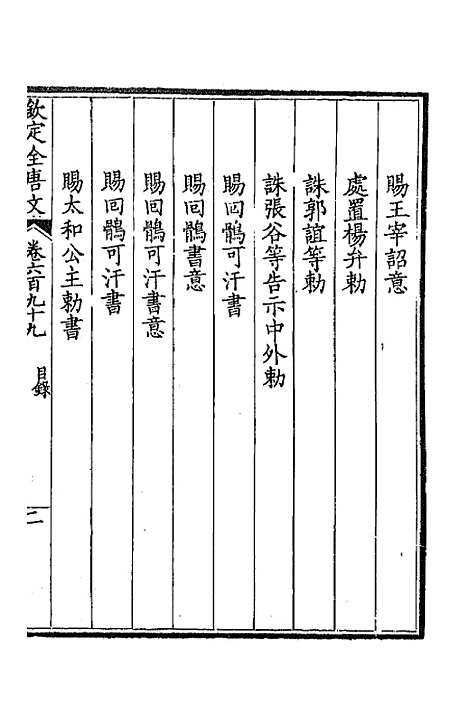 賜王宰詔意
處置楊弁勅
誅郭誼等勅
誅張谷等告示中外勅
賜回鶻可汗書
賜回鶻書意
賜回鶻可汗書意
賜回鶻可汗書
賜太和公主勅書
欽定全唐文 卷六百九十九 目錄 二